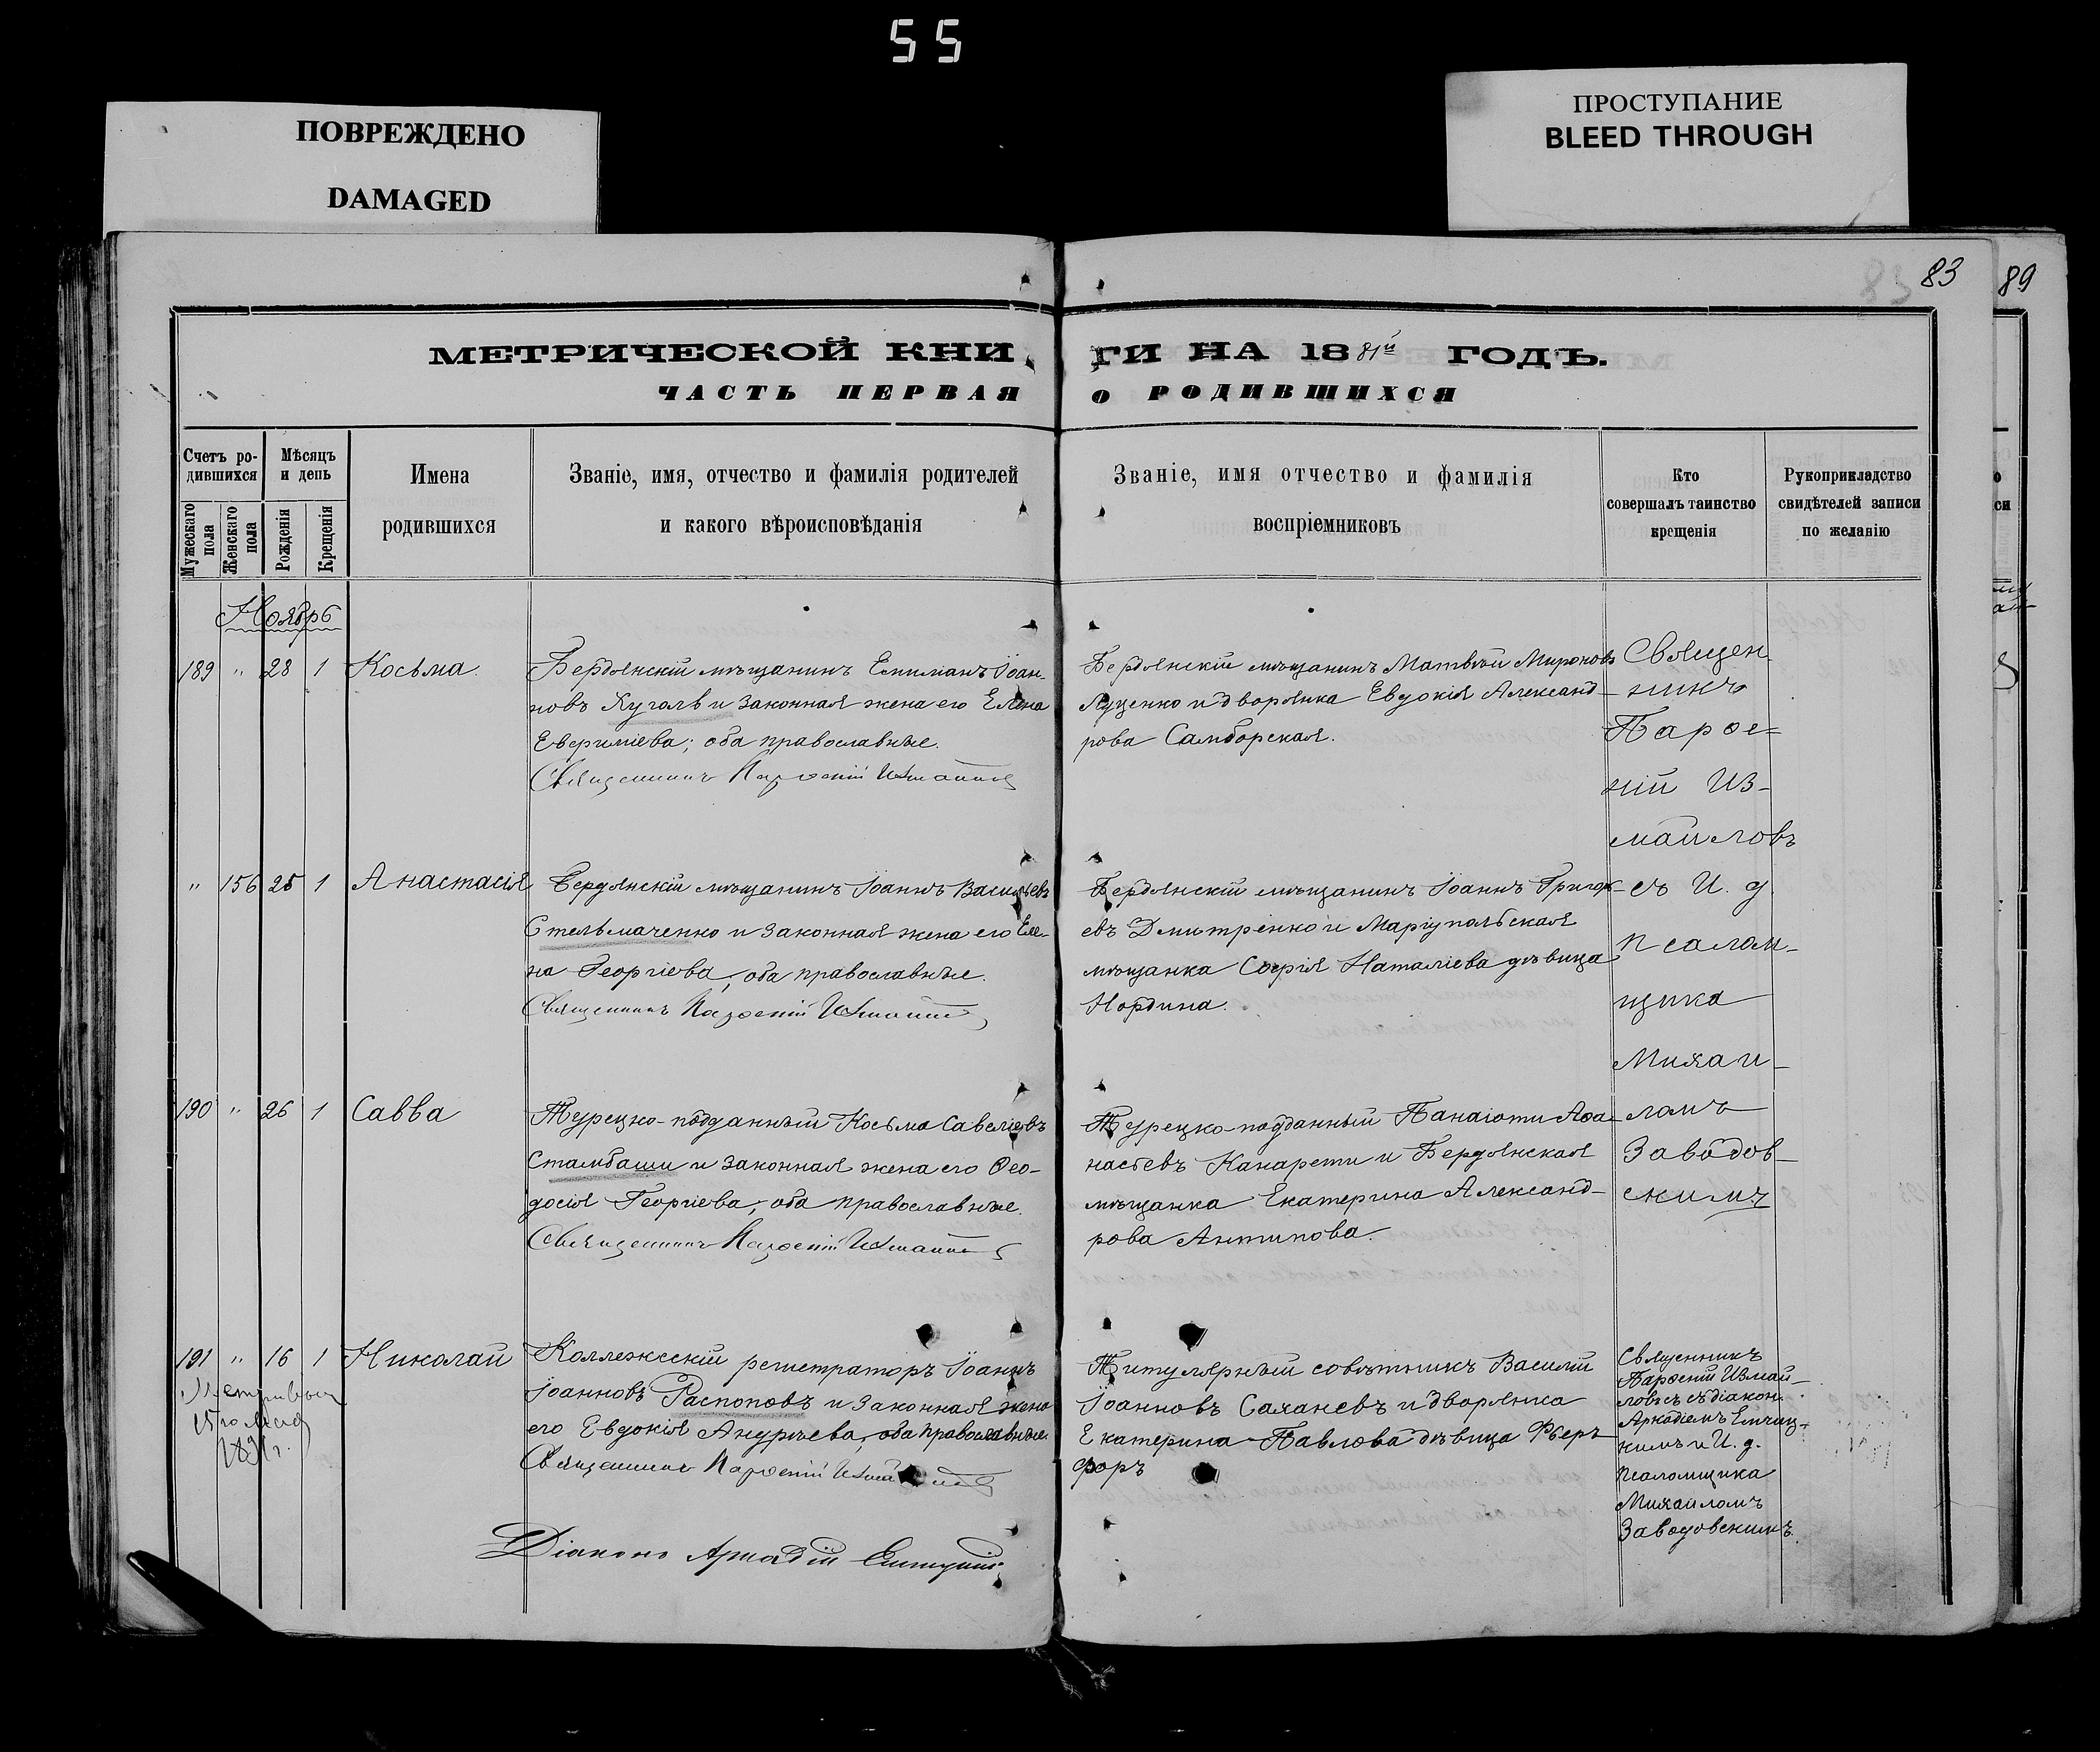 55
ПОВРЕЖДЕНО
DAMAGED
ПРОСТУПАНИЕ
BLEED THROUGH
83
89
МЕТРИЧЕСКОЙ КНИ ГИ НА 1881й ГОДЪ.
ЧАСТЬ ПЕРВАЯ О РОДИВШИХСЯ
Счетъ ро-
дившихся
Мужескаго
пола
Женскаго
пола
Мѣсяцъ
и день
Рожденія
Крещенія
Имена
родившихся
Званіе, имя, отчество и фамилія родителей
и какого вѣроисповѣданія
Званіе, имя отчество и фамилія
воспріемниковъ
Кто
совершалъ таинство
крещенія
Рукоприкладство
свидѣтелей записи
по желанію
Ноябрь
189 " 28 1 Косьма
Бердянскій мѣщанинъ Іоан-
новъ и законная жена его Елена
оба православные.
Священникъ
Бердянскій мѣщанинъ Матвѣй Мироновъ
Луценко и дворянка Евдокія Александ-
рова Самборская.
Священ
никъ
Парѳе=
ній Из-
маиловъ
съ И. д.
псалом-
щика
Михаи-
ломъ
Заводов-
скимъ
" 156 25 1 Анастасія
Бердянскій мѣщанинъ Іоаннъ Васильевъ
Стельмаченко и законная жена его Еле-
на Георгіева, оба православные.
Священникъ
Бердянскій мѣщанинъ Іоаннъ Григор-
евъ Дмитренко и Маріупольская
мѣщанка Софія дѣвица
190 " 26 1 Савва
Турецко-подданный Косьма Савеліевъ
Стамбаши и законная жена его Ѳео-
досія Георгіева, оба православные.
Священникъ
Турецко-подданный Панаіоти Аѳа-
насьевъ и Бердянская
мѣщанка Екатерина Александ-
рова Антипова.
191 " 16 1 Николай
1891г.
Коллежскій регистраторъ Іоаннъ
Іоанновъ Распоповъ и законная жена
его Евдокія Андреева, оба православные.
Священникъ
Діаконъ Аркадій
Титулярный совѣтникъ Василій
Іоанновъ и дворянка
Екатерина Павлова дѣвица Фьер-
форъ
Священникъ
Парѳеній Измай-
ловъ съ діакон.
Аркадіемъ
и И. д.
псаломщика
Михаиломъ
Заводовскимъ.